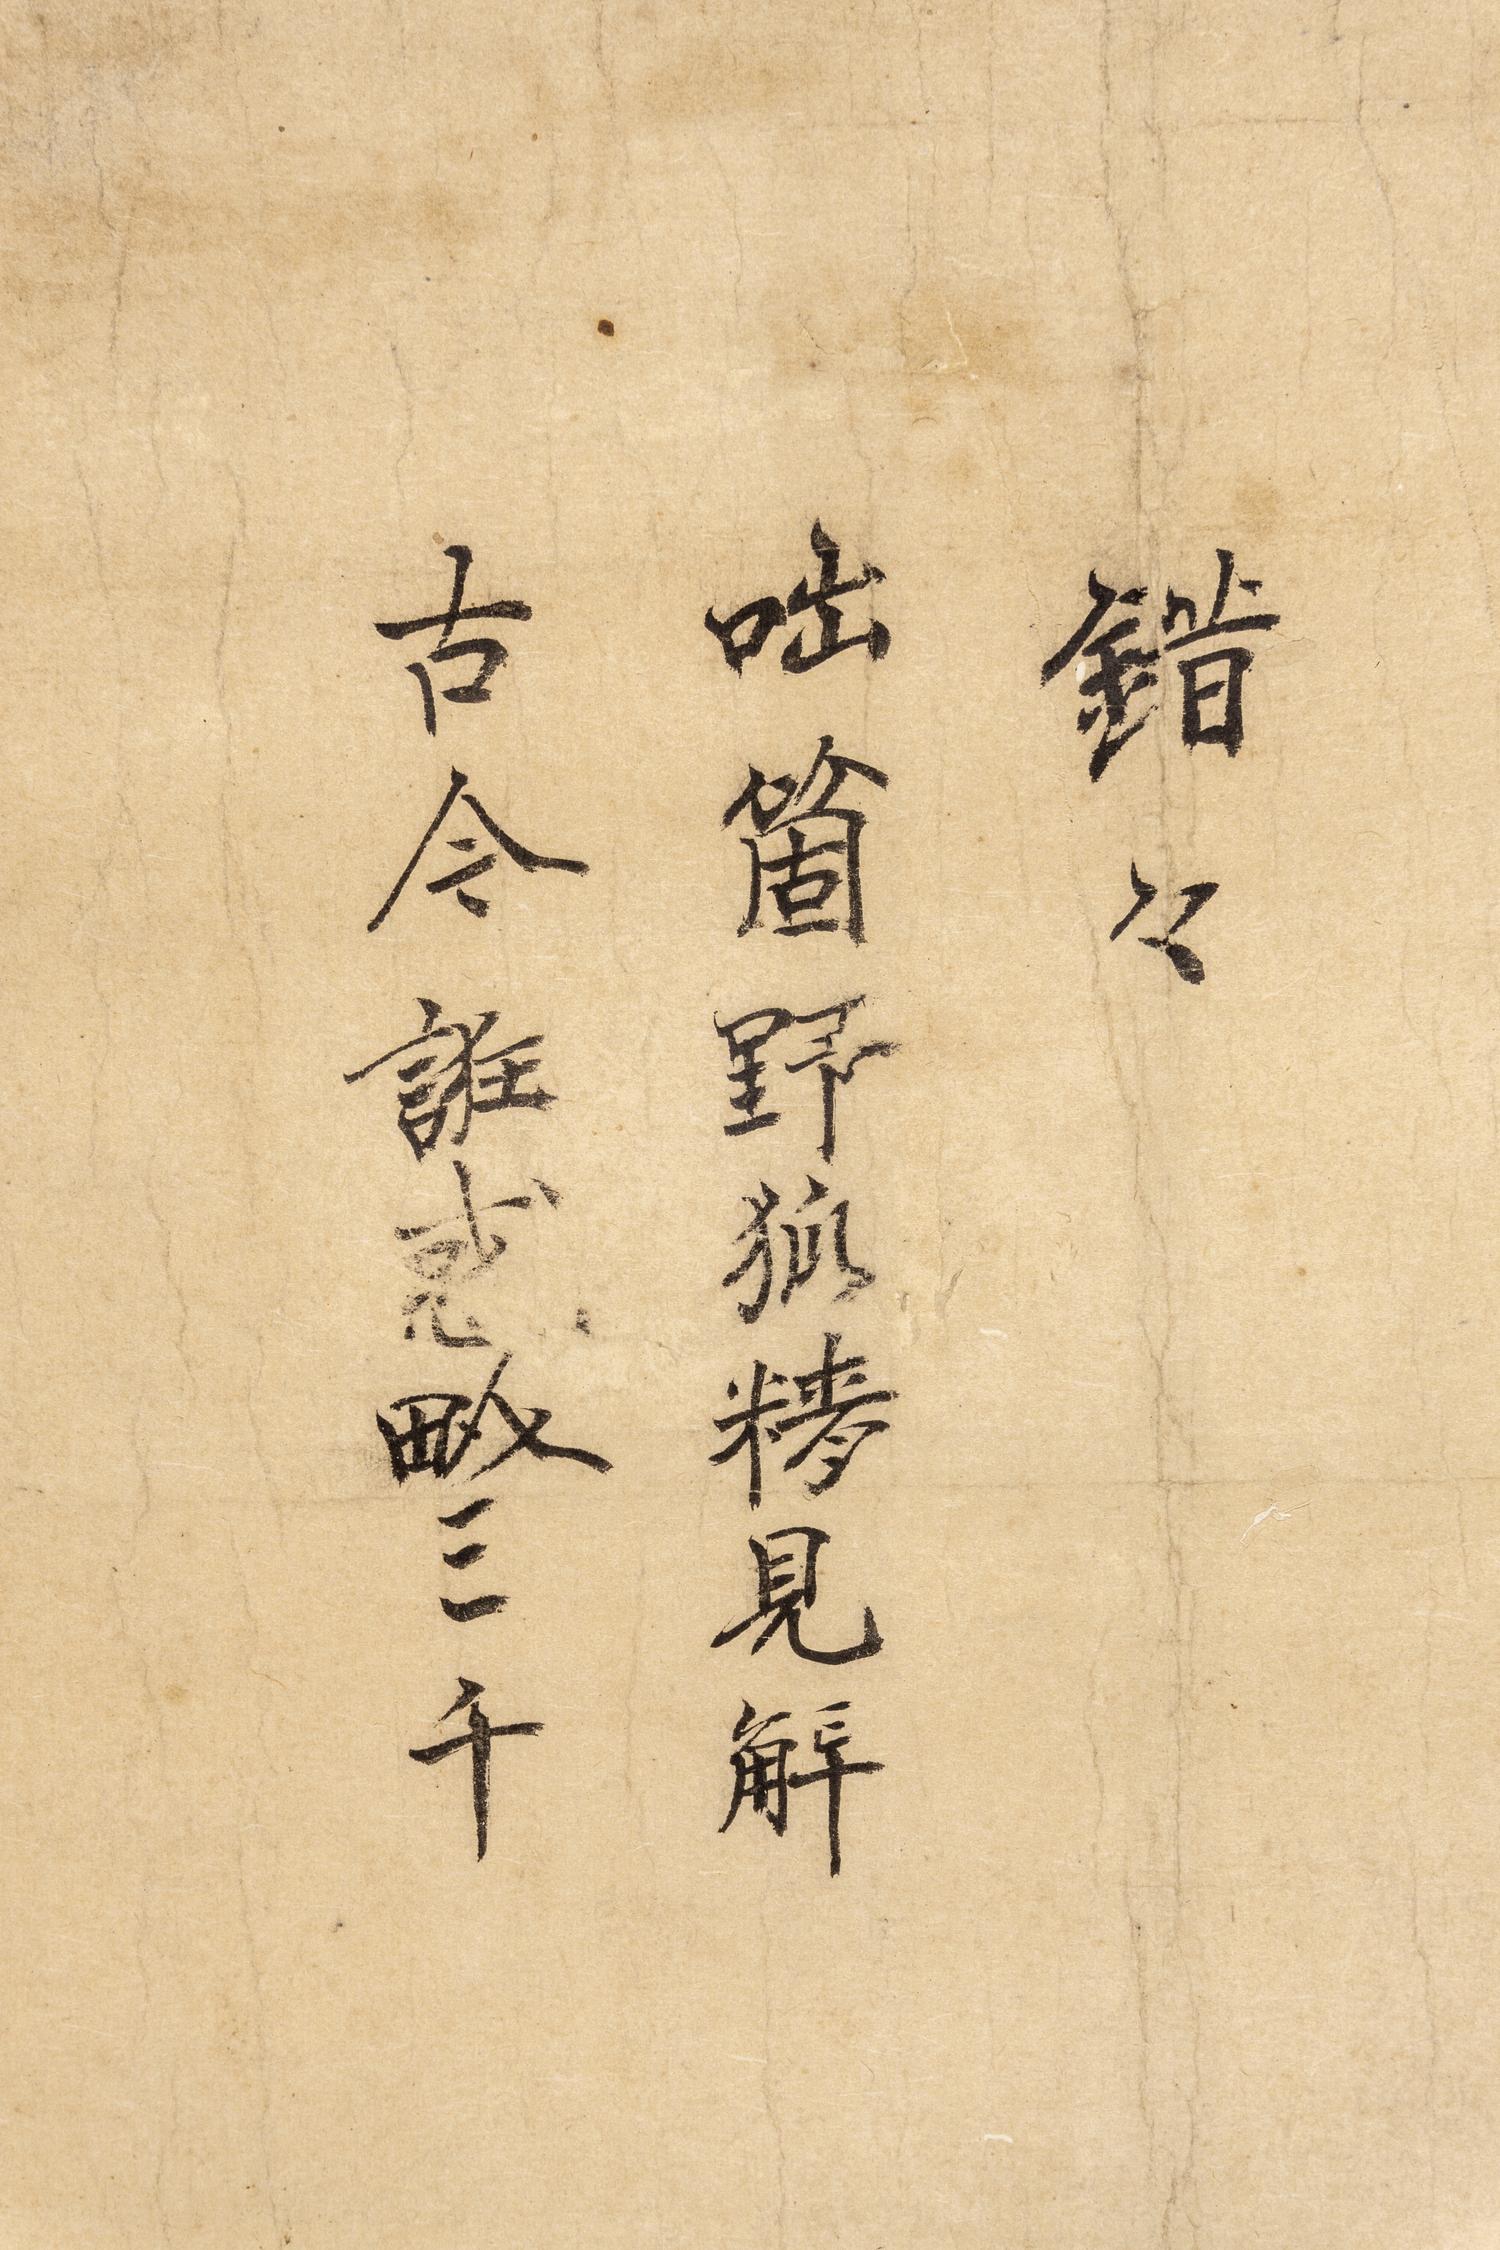 錯々
咄箇野狐精見解
古今誑惑三千